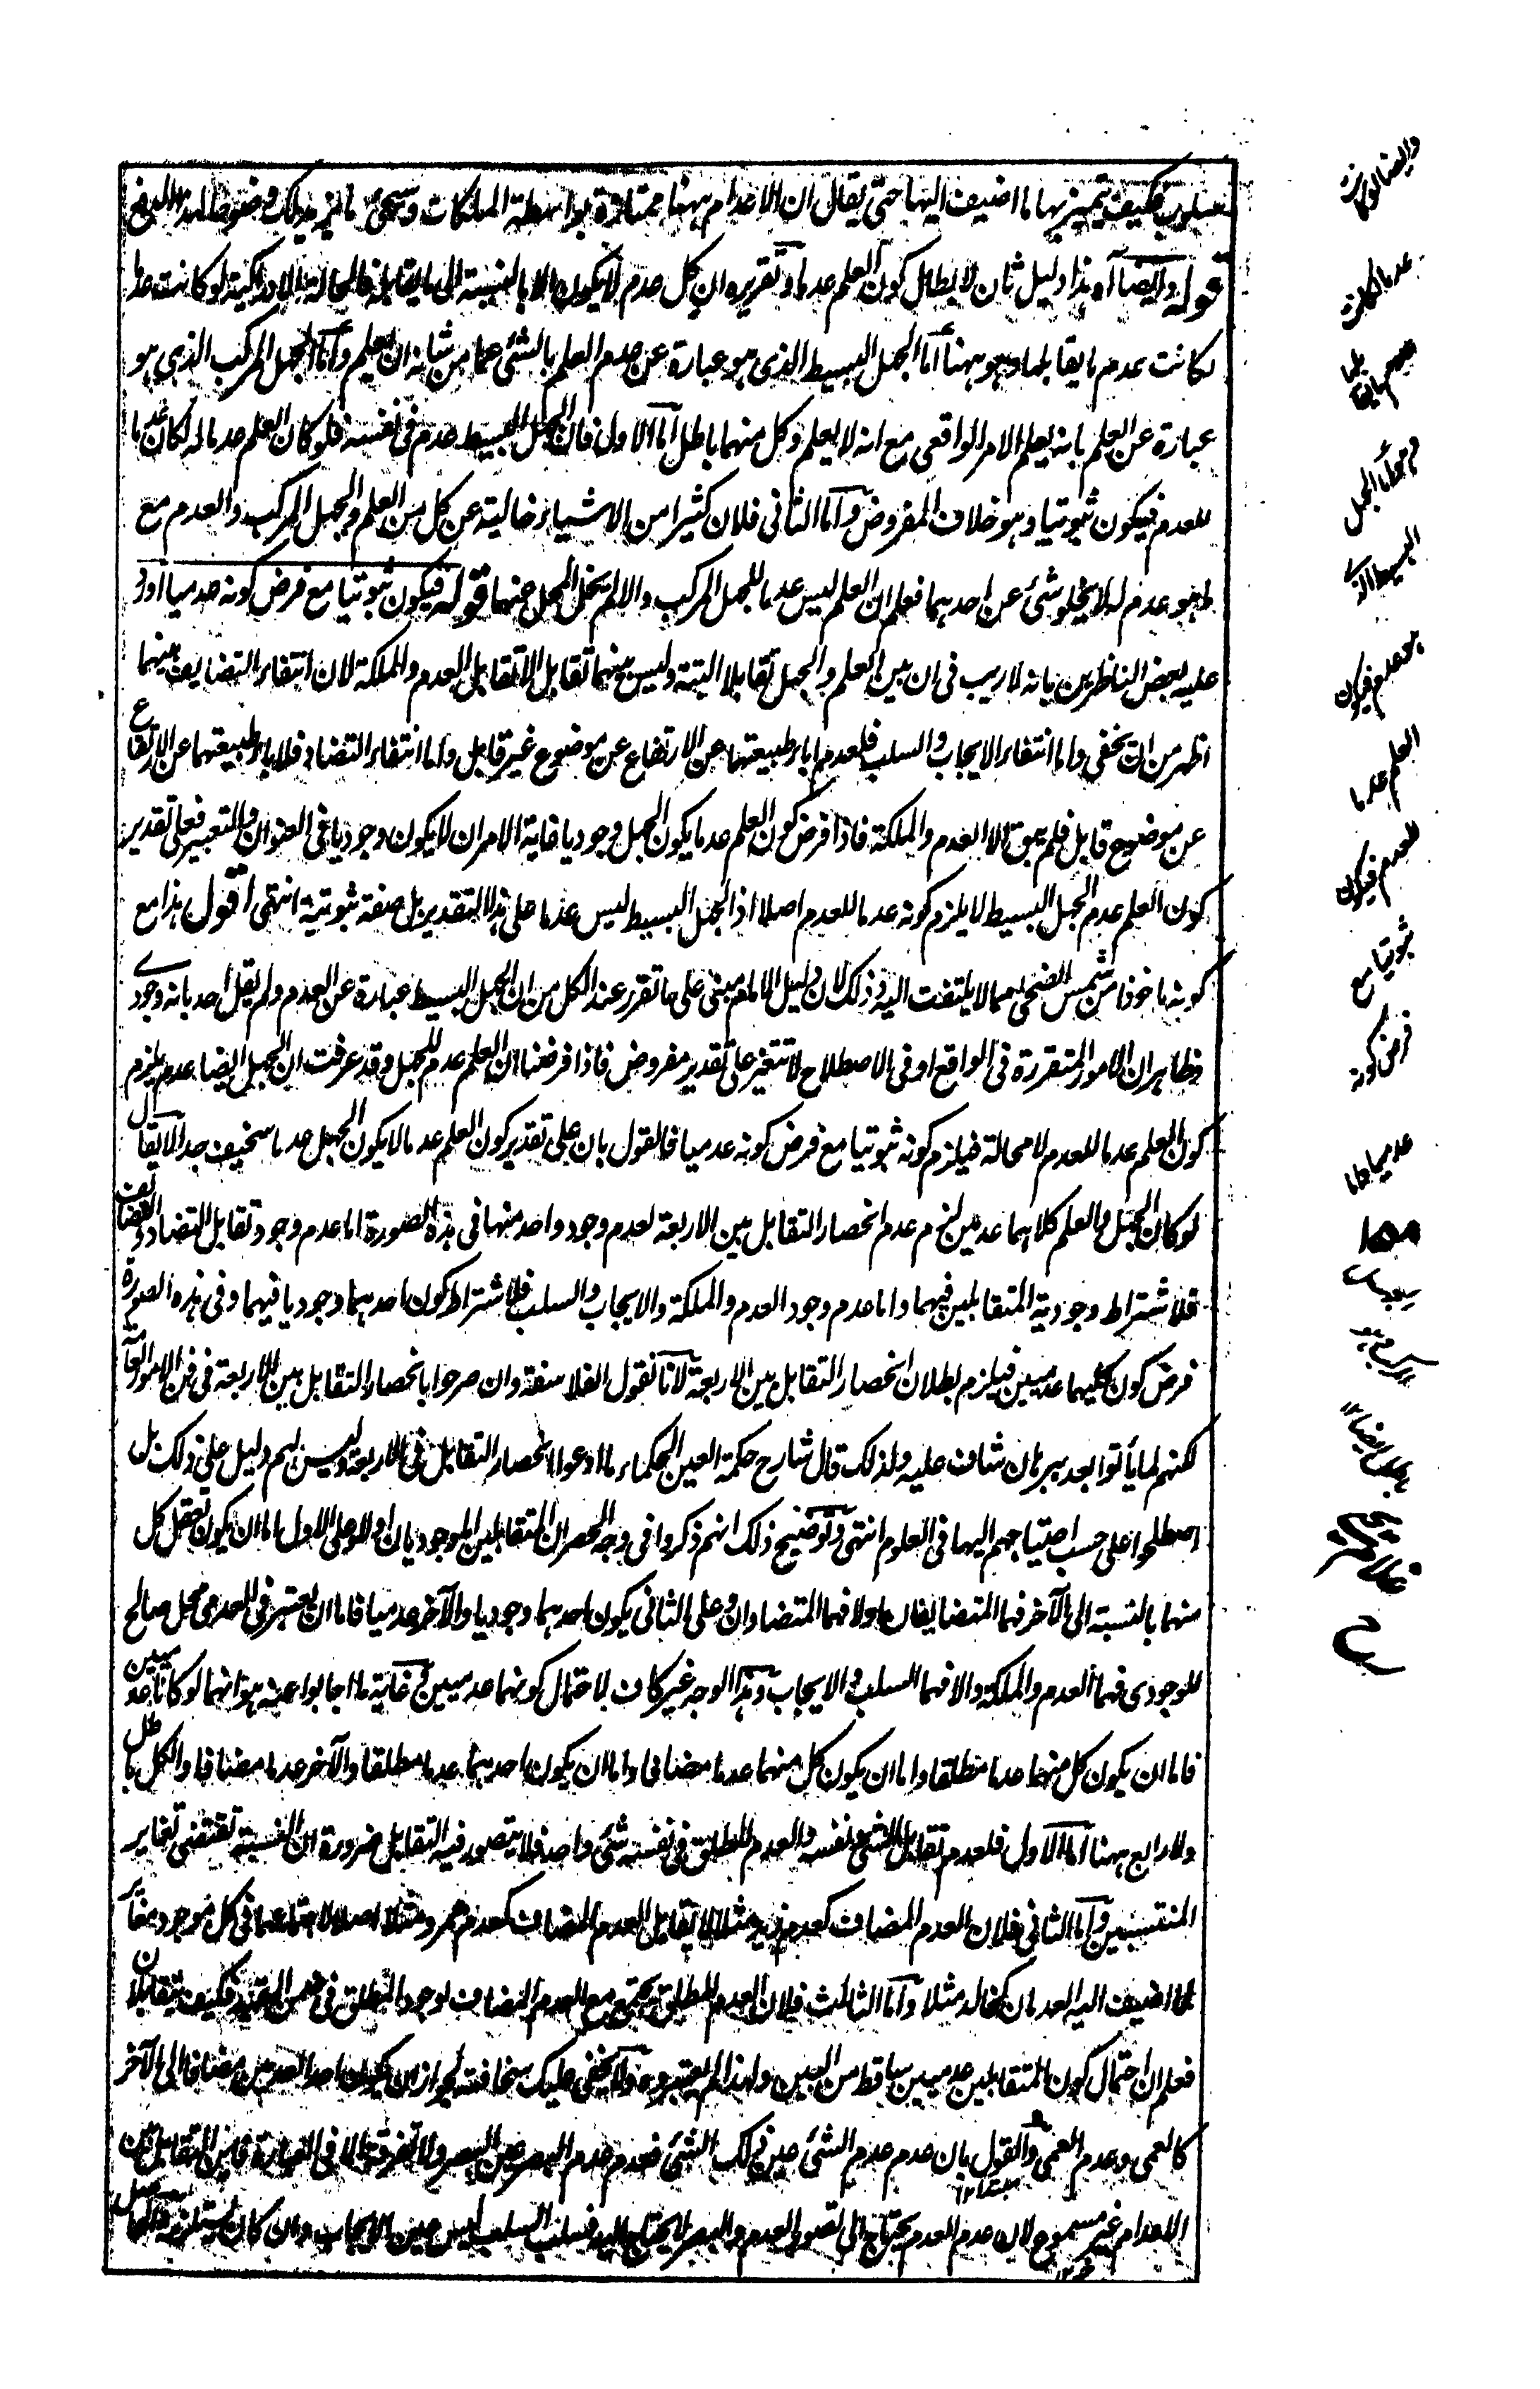 سلوب فكيف يتميز بها ما اضيف اليها حتى يقال ان الاعدام ههنا ممتازة بواسطة الملكات وسيجئ ما يزيدك وضوحا لهذا
قوله وايضا آه هذا دليل ثان لابطال كون العلم عدما وتقريره ان كل عدم لا يكون الا بالنسبة الى ما يقابله فالحالة الادراكية لو كانت عدما
لكانت عدم ما يقابلها وهو ههنا اما الجهل البسيط الذى هو عبارة عن عدم العلم بالشئ عما من شانه ان يعلم واما الجهل المركب الذى هو
عبارة عن العلم بانه يعلم الامر الواقعى مع انه لا يعلم وكل منهما باطل اما الاول فلان الجهل البسيط عدم فى نفسه فلو كان العلم عدما له لكان عدما
للعدم فيكون ثبوتيا وهو خلاف المفروض واما الثانى فلان كثيرا من الاشياء خالية عن كل من العلم والجهل المركب والعدم مع
ما هو عدم له لا يخلو شئ عن احدهما فعلم ان العلم ليس عدما للجهل المركب والا لم يخل المحل عنهما قوله فيكون ثبوتيا مع فرض كونه عدميا اورد
عليه بعض الناظرين بانه لا ريب فى ان بين العلم والجهل تقابلا البتة وليس بينهما تقابل الا تقابل العدم والملكة لان انتفاء التضايف بينهما
اظهر من ان يخفى واما انتفاء الايجاب والسلب فلعدم اباء طبيعتهما عن الارتفاع عن موضوع غير قابل واما انتفاء التضاد فلاباء طبيعتهما عن الارتفاع
عن موضوع قابل فلم يبق الا العدم والملكة فاذا فرض كون العلم عدما يكون الجهل وجوديا غاية الامر ان لا يكون وجوديا فى العنوان والتعبير فعلى تقدير
كون العلم عدم الجهل البسيط لا يلزم كونه عدما للعدم اصلا اذ الجهل البسيط ليس عدما على هذا التقدير بل صفة ثبوتية انتهى اقول هذا مع
كونه ماخوذا من شمس الضحى مما لا يلتفت اليه وذلك لان دليل الامام مبنى على ما تقرر عند الكل من ان الجهل البسيط عبارة عن العدم ولم يقل احد بانه وجودى
وظاهر ان الامور المتقررة فى الواقع او فى الاصطلاح لا تتغير على تقدير مفروض فاذا فرضنا ان العلم عدم للجهل وقد عرفت ان الجهل ايضا عدم يلزم
كون العلم عدما للعدم لا محالة فيلزم كونه ثبوتيا مع فرض كونه عدميا فالقول بان على تقدير كون العلم عدما لا يكون الجهل عدما سخيف جدا لا يقال
لو كان الجهل والعلم كلاهما عدمين لزم عدم انحصار التقابل بين الاربعة لعدم وجود واحد منها فى هذه الصورة اما عدم وجود تقابل التضاد والتضايف
فلاشتراط وجودية المتقابلين فيهما واما عدم وجود العدم والملكة والايجاب والسلب فلاشتراط كون احدهما وجوديا فيهما وفى هذه الصورة
فرض كون كليهما عدميين فيلزم بطلان انحصار التقابل بين الاربعة لانا نقول الفلاسفة وان صرحوا بانحصار التقابل بين الاربعة فى فن الامور العامة
لكنهم لم يأتوا بعد ببرهان شاف عليه ولذلك قال شارح حكمة العين الحكماء ما ادعوا انحصار التقابل فى الاربعة وليس لهم دليل على ذلك بل
اصطلحوا على حسب احتياجهم اليها فى العلوم انتهى وتوضيح ذلك انهم ذكروا فى وجه الحصر ان المتقابلين اما وجوديان اولا وعلى الاول اما ان يكون تعقل كل
منهما بالنسبة الى الآخر فهما المتضايفان اولا فهما المتضادان وعلى الثانى يكون احدهما وجوديا والآخر عدميا فاما ان يعتبر فى العدمى محل صالح
للوجودى فهما العدم والملكة والا فهما السلب والايجاب وهذا الوجه غير كاف لاحتمال كونهما عدميين وغاية ما اجابوا عنه هو انهما لو كانا عدميين
فاما ان يكون كل منهما عدما مطلقا واما ان يكون كل منهما عدما مضافا واما ان يكون احدهما عدما مطلقا والآخر عدما مضافا والكل باطل
ولا رابع ههنا اما الاول فلعدم تقابل الشئ نفسه والعدم المطلق فى نفسه شئ واحد فلا يتصور فيه التقابل ضرورة ان النسبة تقتضى تغاير
المنتسبين واما الثانى فلان العدم المضاف كعدم زيد مثلا لا يقابل العدم المضاف كعدم عمرو مثلا اصلا لاجتماعهما فى كل موجود مغاير
لما اضيف اليه العدمان كخالد مثلا واما الثالث فلان العدم المطلق يجتمع مع العدم المضاف لوجود المطلق فى ضمن المقيد فكيف يتقابلان
فعلم ان احتمال كون المتقابلين عدميين ساقط من البين ولهذا لم يعتبروه ولا يخفى عليك سخافته لجواز ان يكون احد العدمين مضافا الى الآخر
كالعمى وعدم العمى والقول بان عدم عدم الشئ عين ذلك الشئ فعدم عدم البصر عين البصر ولا تفرقة الا فى العبارة فاين المتقابلان
الاعدام غير مسموع لان عدم العدم يحتاج الى تصور العدم والبصر لا يحتاج اليه فسلب السلب ليس عين الايجاب وان كان يستلزمه
وايضا لو كانت
عدما لكانت
عدم ما يقابلها
وهو اما الجهل
البسيط
فيكون
العلم عدما
للعدم فيكون
ثبوتيا مع
فرض كونه
عدميا